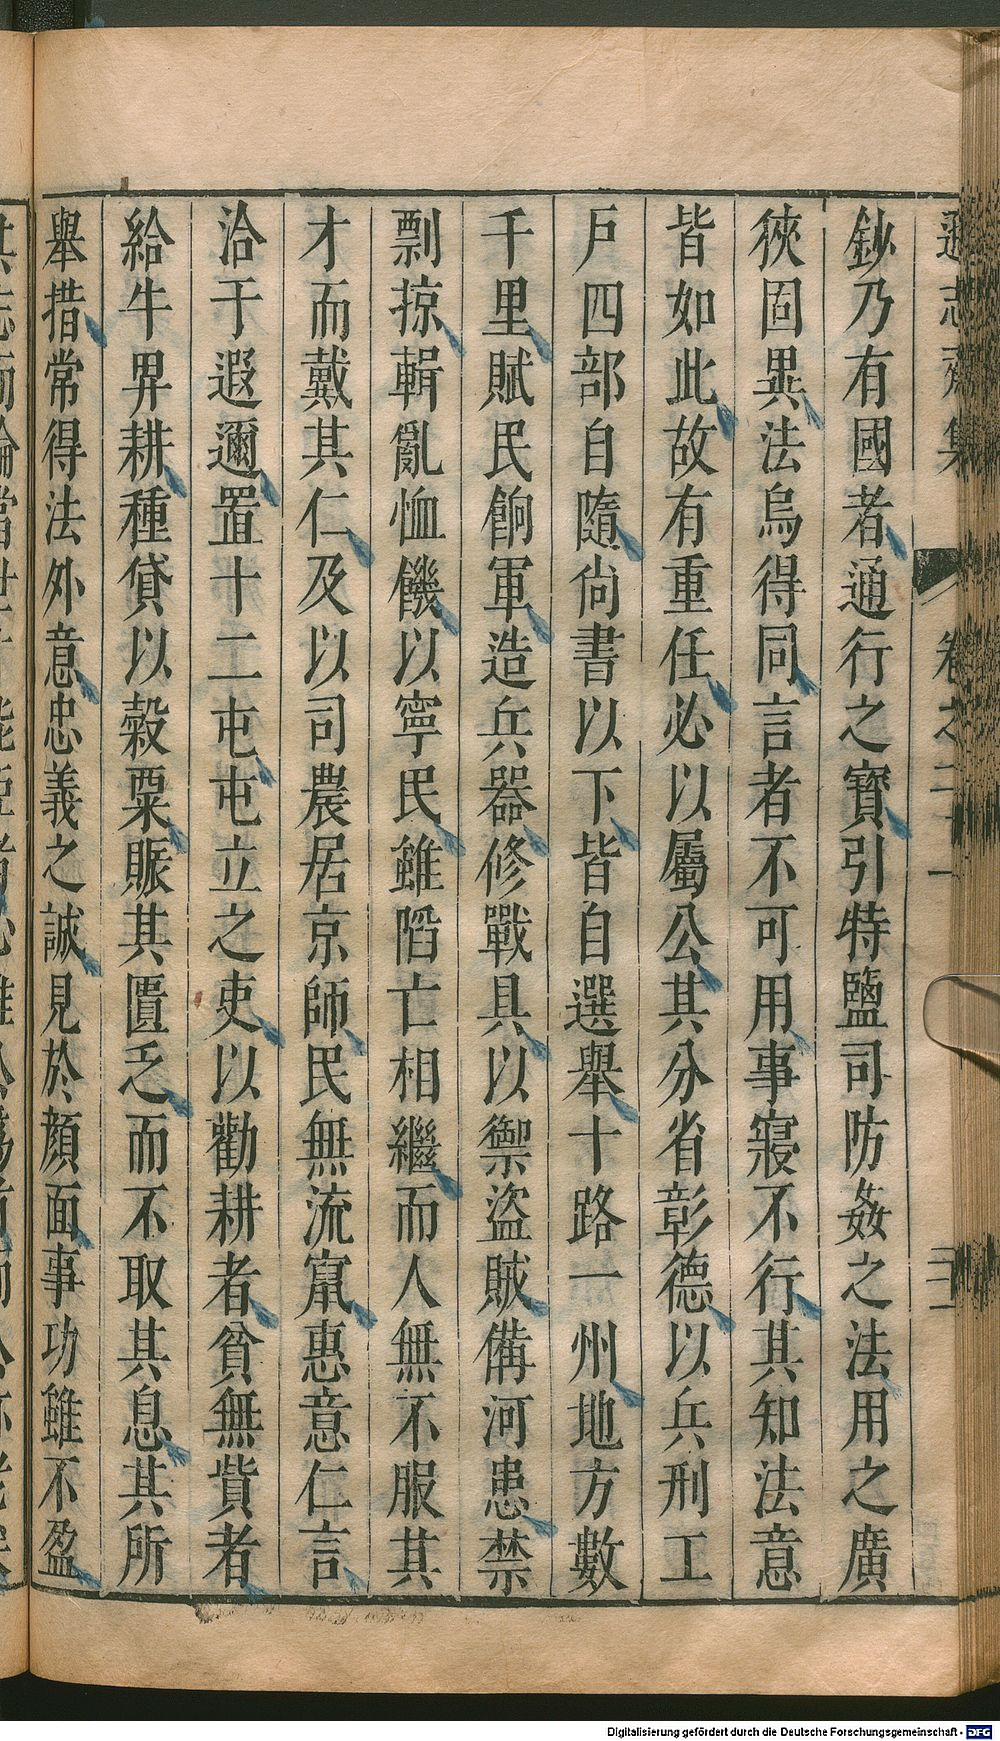 遜志齋集 卷之二十一
鈔乃有國者通行之寳引特鹽司防姦之法用之廣
狹固異法烏得同言者不可用事寢不行其知法意
皆如此故有重任必以屬公其分省彰德以兵刑工
戶四部自隨尚書以下皆自選舉十路一州地方數
千里賦民餉軍造兵器修戰具以禦盜賊備河患禁
剽掠輯亂恤饑以寧民雖陷亡相繼而人無不服其
才而戴其仁及以司農居京師民無流竄惠意仁言
洽于遐邇置十二屯屯立之吏以勸耕者貧無貲者
給牛畀耕種貸以穀粟賑其匱乏而不取其息其所
舉措常得法外意忠義之誠見於顏面事功雖不盈
Digitalisierung gefördert durch die Deutsche Forschungsgemeinschaft - DFG